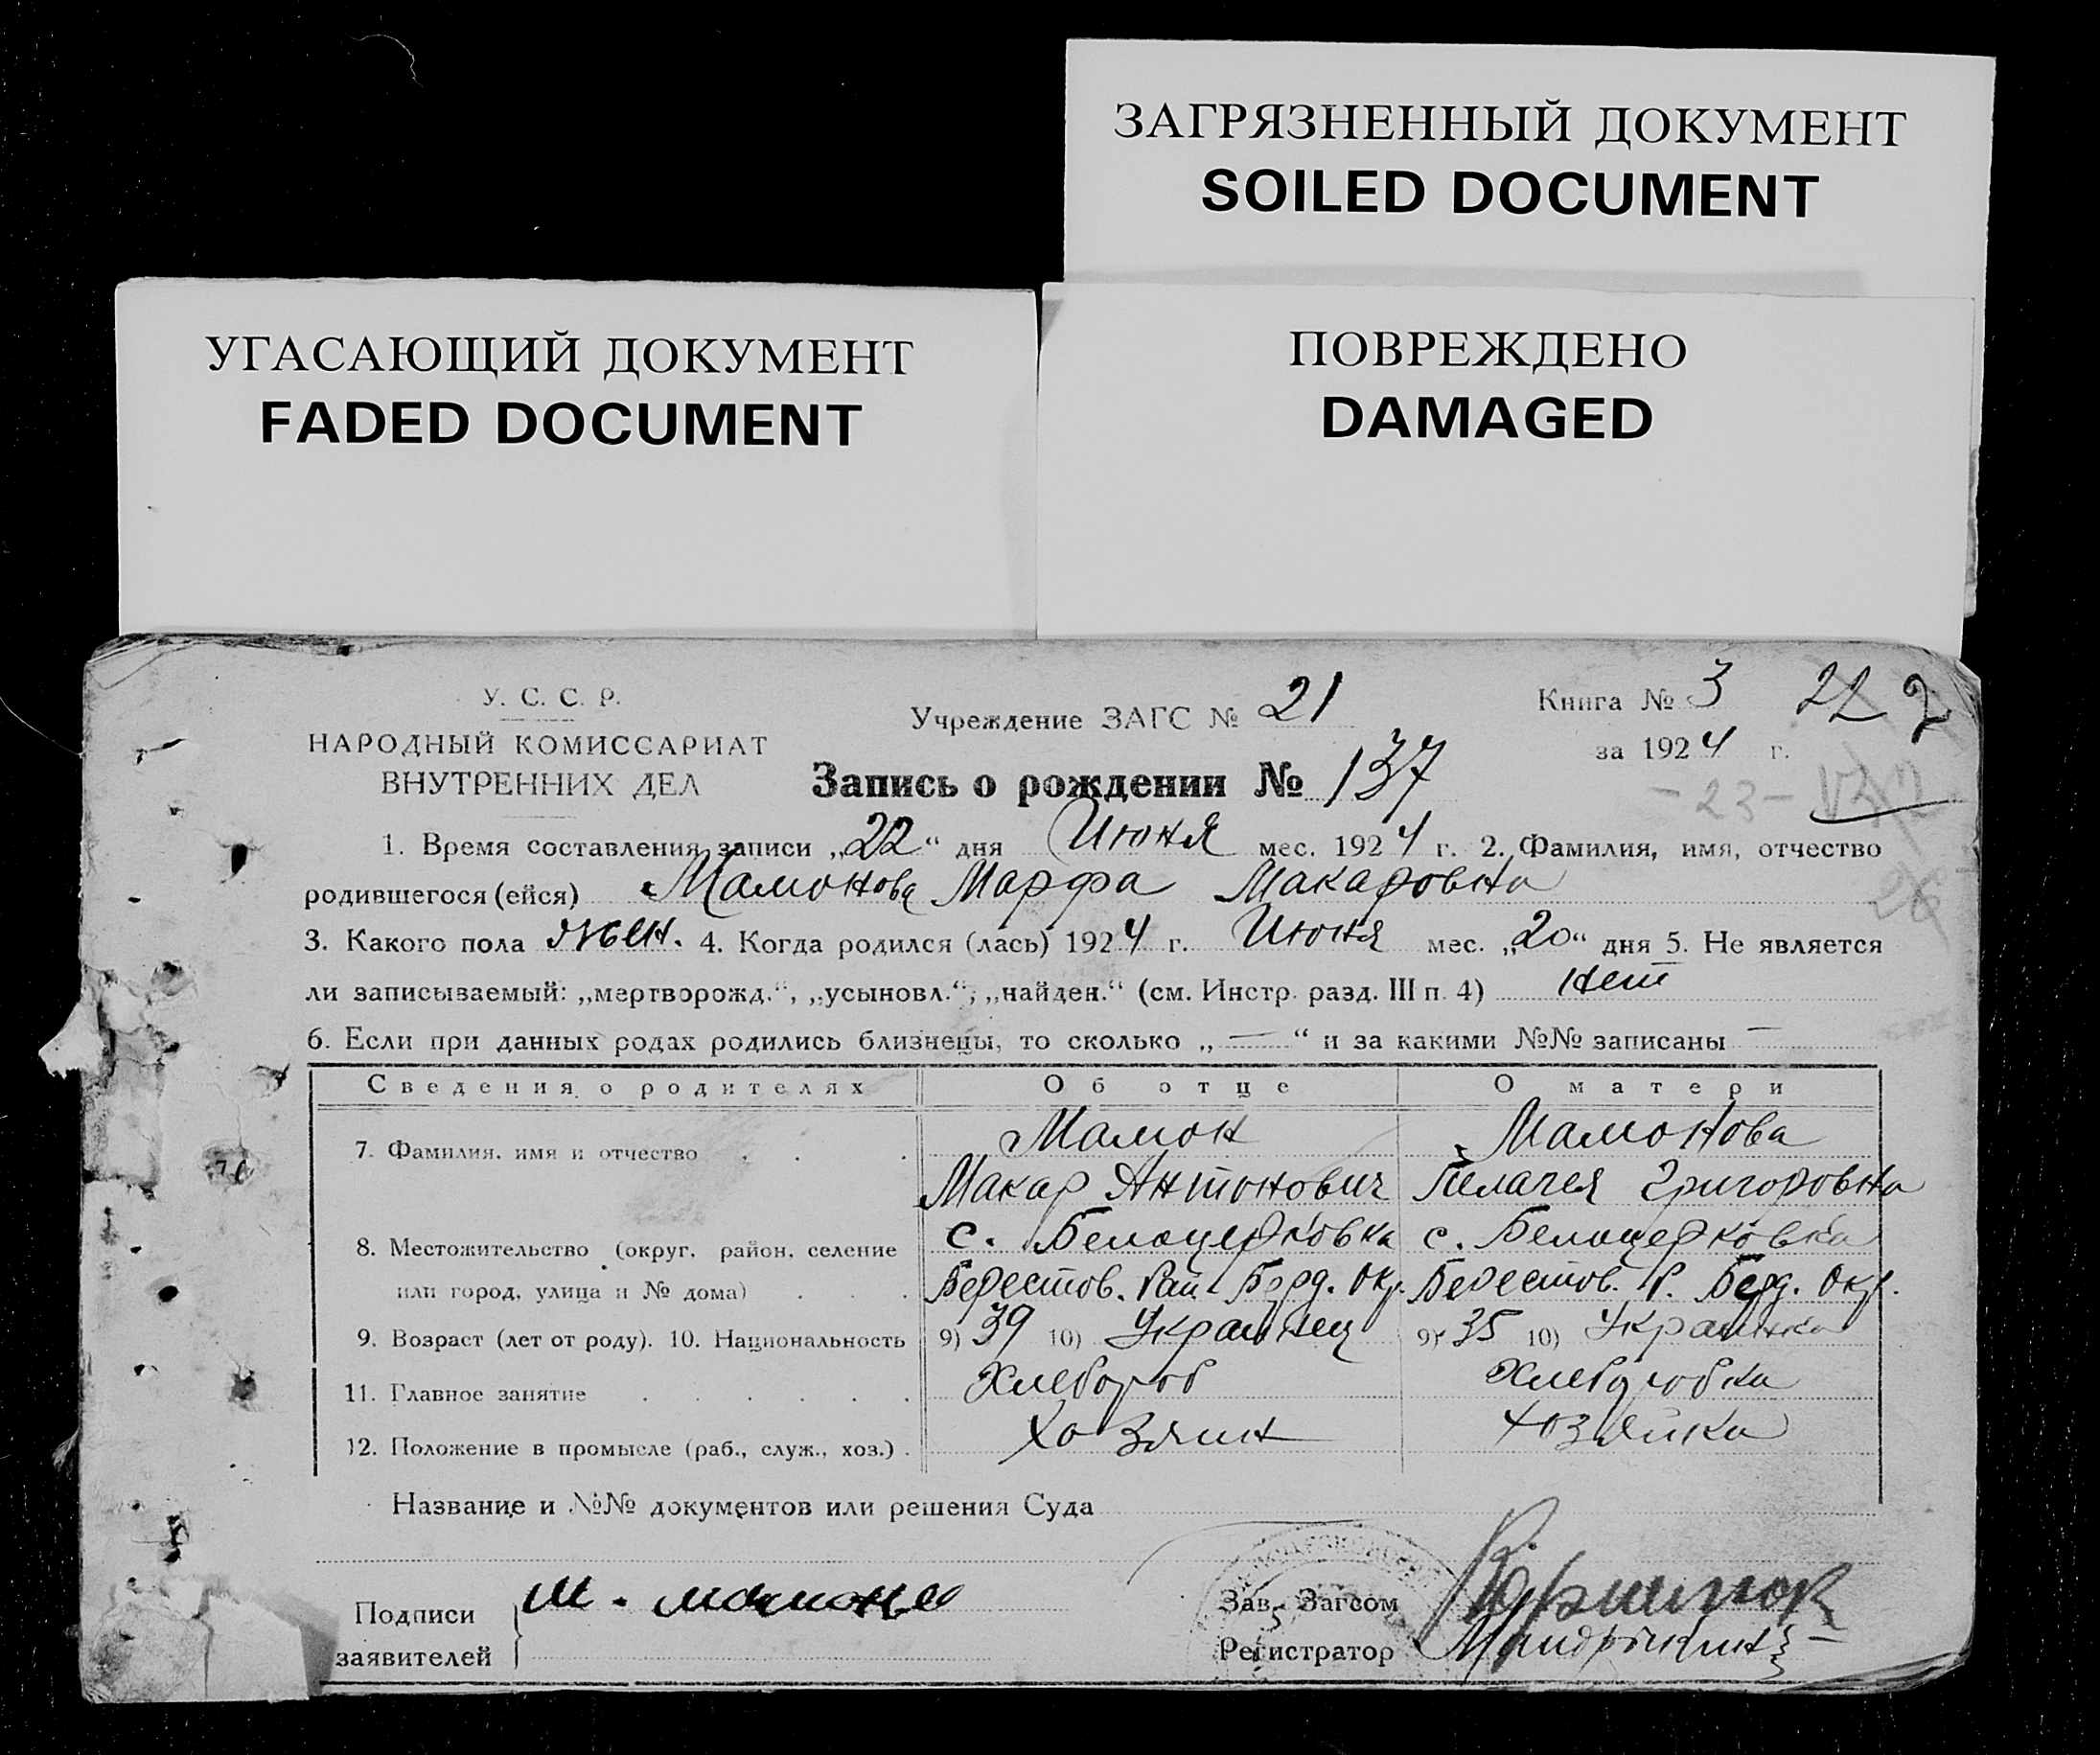 ЗАГРЯЗНЕННЫЙ ДОКУМЕНТ
SOILED DOCUMENT
УГАСАЮЩИЙ ДОКУМЕНТ
FADED DOCUMENT
ПОВРЕЖДЕНО
DAMAGED
У. С. С. Р.
НАРОДНЫЙ КОМИССАРИАТ
ВНУТРЕННИХ ДЕЛ
Учреждение ЗАГС № 21
Книга № 3
за 1924 г.
Запись о рождении № 137
- 23 -
1. Время составления записи „22“ дня Июня мес. 1924 г. 2. Фамилия, имя, отчество
родившегося (ейся) Мамонова Марфа Макаровна
3. Какого пола жен. 4. Когда родился (лась) 1924 г. Июня мес. „20“ дня 5. Не является
ли записываемый: „мертворожд.“, „усыновл.“, „найден.“ (см. Инстр. разд. III п. 4) нет
6. Если при данных родах родились близнецы, то сколько „—“ и за какими №№ записаны —
Сведения о родителях Об отце О матери
7. Фамилия, имя и отчество Мамон Мамонова
Макар Антонович Пелагея Григоровна
8. Местожительство (округ, район, селение с. Белоцерковка с. Белоцерковка
или город, улица и № дома) Берестов. Рай Берд. Окр. Берестов. Р. Берд. Окр.
9. Возраст (лет от роду). 10. Национальность 9) 39 10) Украинец 9) 35 10) Украинка
11. Главное занятие Хлебороб Хлеборобка
12. Положение в промысле (раб., служ., хоз.) Хозяин хозяйка
Название и №№ документов или решения Суда
Подписи
заявителей
М. Мамона
Зав. Загсом
Регистратор